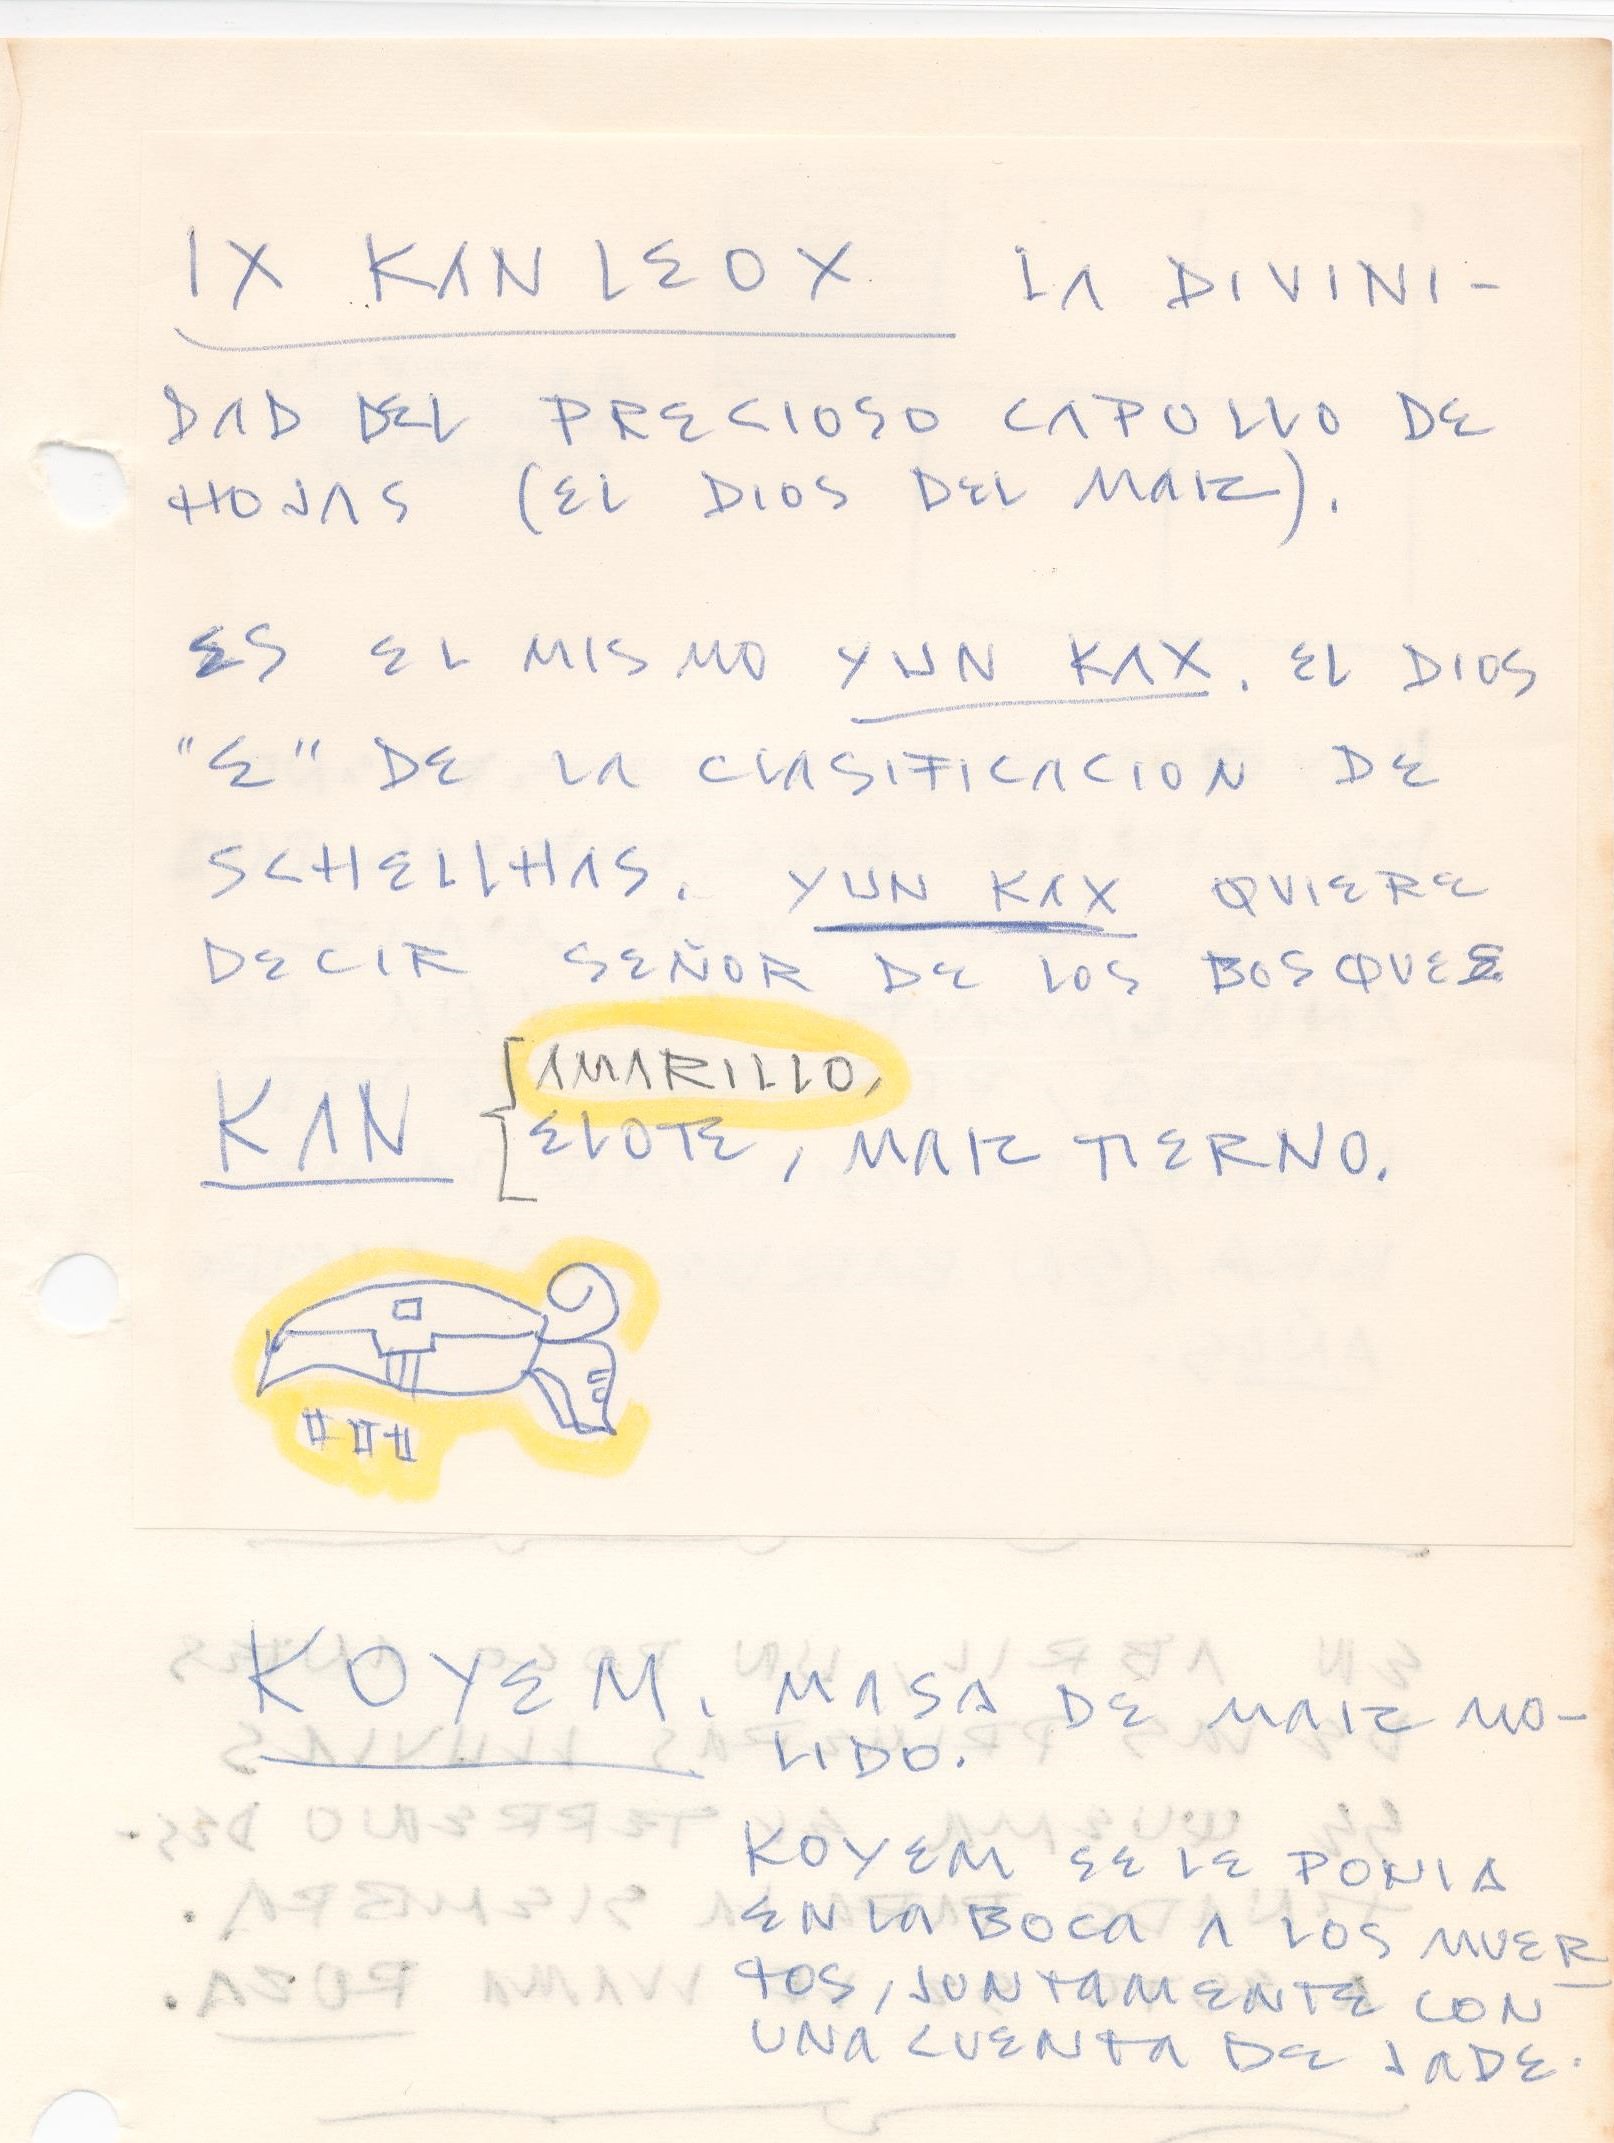 IX KANLEOX LA DIVINI-
DAD DEL PRECIOSO CAPULLO DE
HOJAS (EL DIOS DEL MAIZ).
ES EL MISMO YUN KAX. EL DIOS
"E" DE LA CLASIFICACION DE
SCHELLHAS. YUN KAX QUIERE
DECIR SEÑOR DE LOS BOSQUES
KAN [AMARILLO,
ELOTE, MAIZ TIERNO.
KOYEM. MASA DE MAIZ MO-
LIDO.
KOYEM SE LE PONIA
EN LA BOCA A LOS MUER
TOS, JUNTAMENTE CON
UNA CUENTA DE JADE.